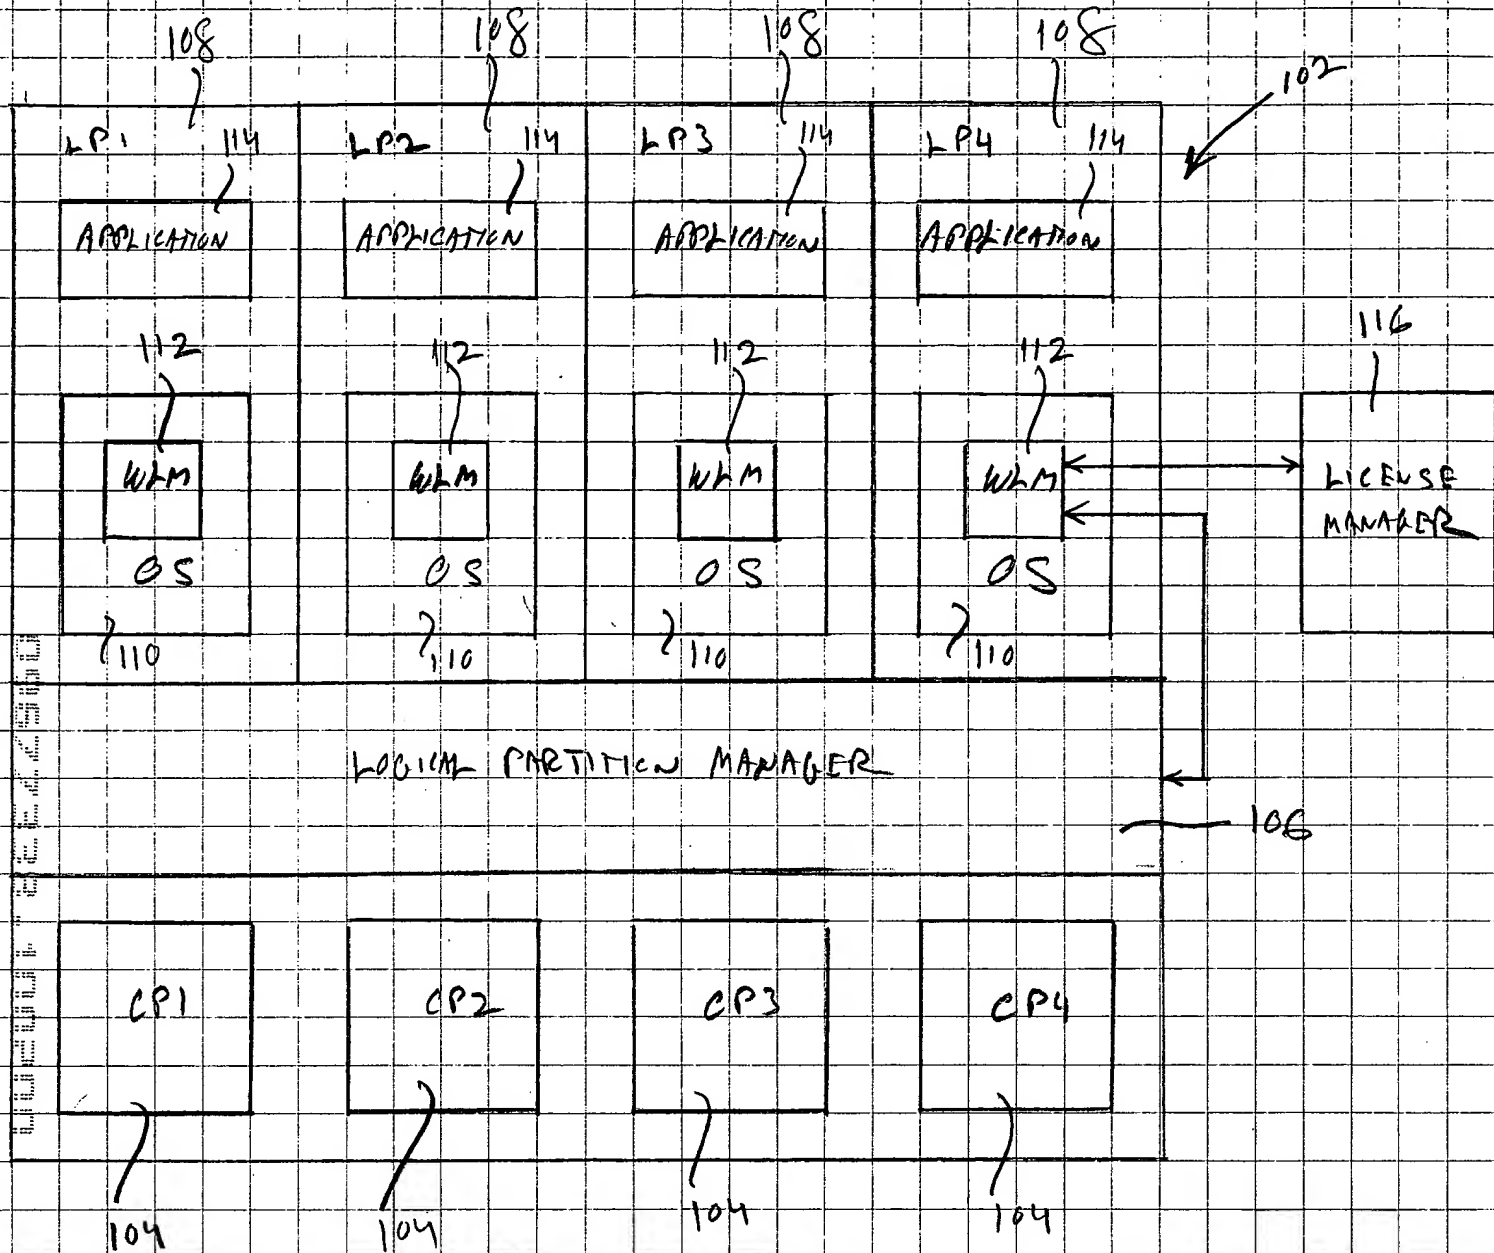 108 108 108 108
102
LP1 114 LP2 114 LP3 114 LP4 114
APPLICATION APPLICATION APPLICATION APPLICATION
116
112 112 112 112
WLM WLM WLM WLM
LICENSE
MANAGER
OS OS OS OS
110 110 110 110
LOGICAL PARTITION MANAGER
106
CP1 CP2 CP3 CP4
104 104 104 104